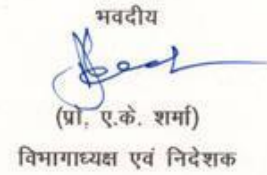 भवदीय
(प्रो. ए.के. शर्मा)
विभागाध्यक्ष एवं निदेशक